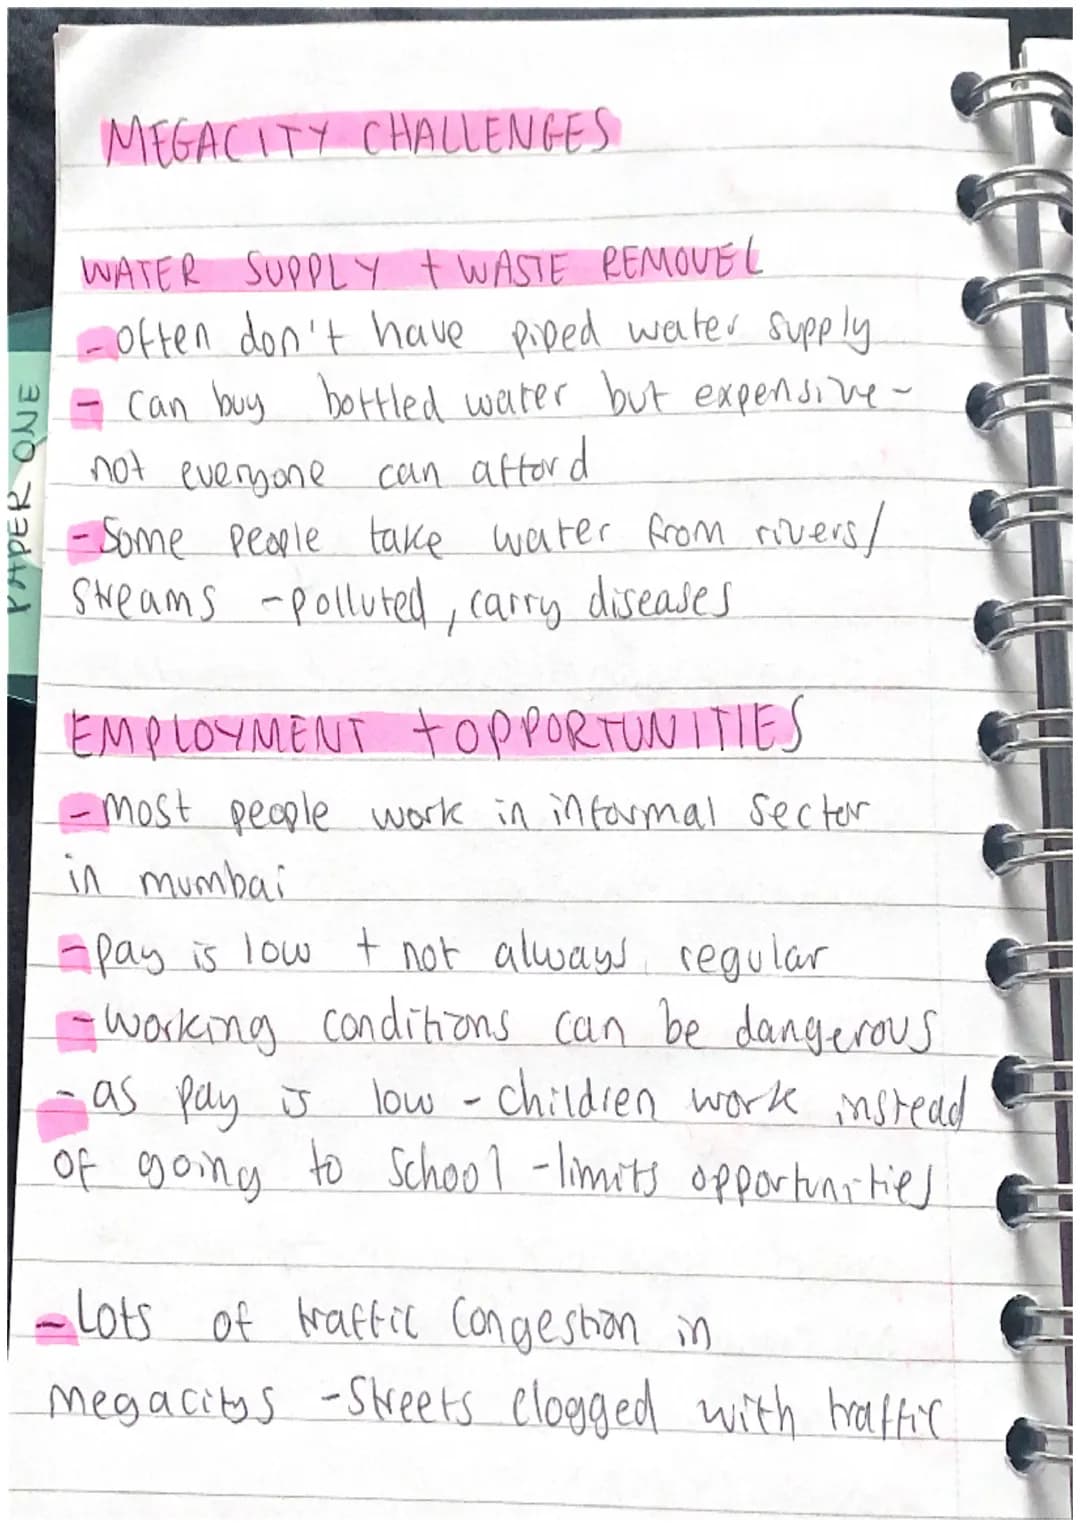 MEGACITY CHALLENGES
WATER SUPPLY + WASTE REMOVEL
- often don't have piped water supply
- can buy bottled water but expensive -
not everyone can afford
- Some people take water from rivers/
streams - polluted, carry diseases
EMPLOYMENT + OPPORTUNITIES
- most people work in informal sector
in mumbai
- pay is low + not always regular
- working conditions can be dangerous
- as pay is low - children work instead
of going to school - limits opportunities
- lots of traffic congestion in
megacitys - streets clogged with traffic
PAPER ONE